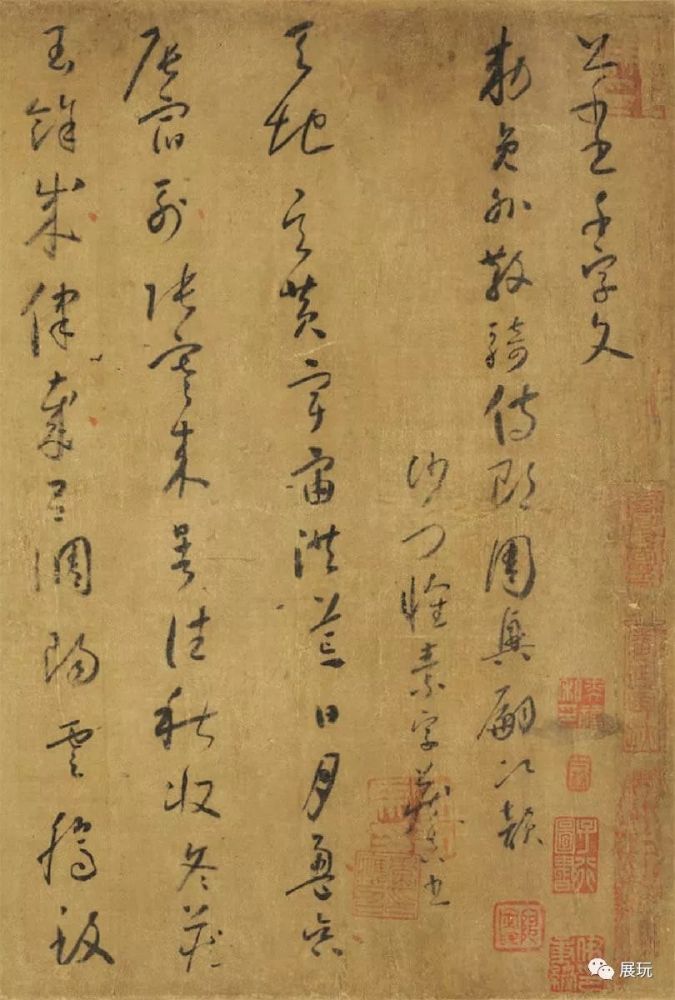 草書千字文
敕員外散騎侍郎周興嗣次韻
沙門懷素字藏真書
天地玄黃宇宙洪荒日月盈昃
辰宿列張寒來暑往秋收冬藏
閏餘成律歲呂調陽雲騰致
展玩